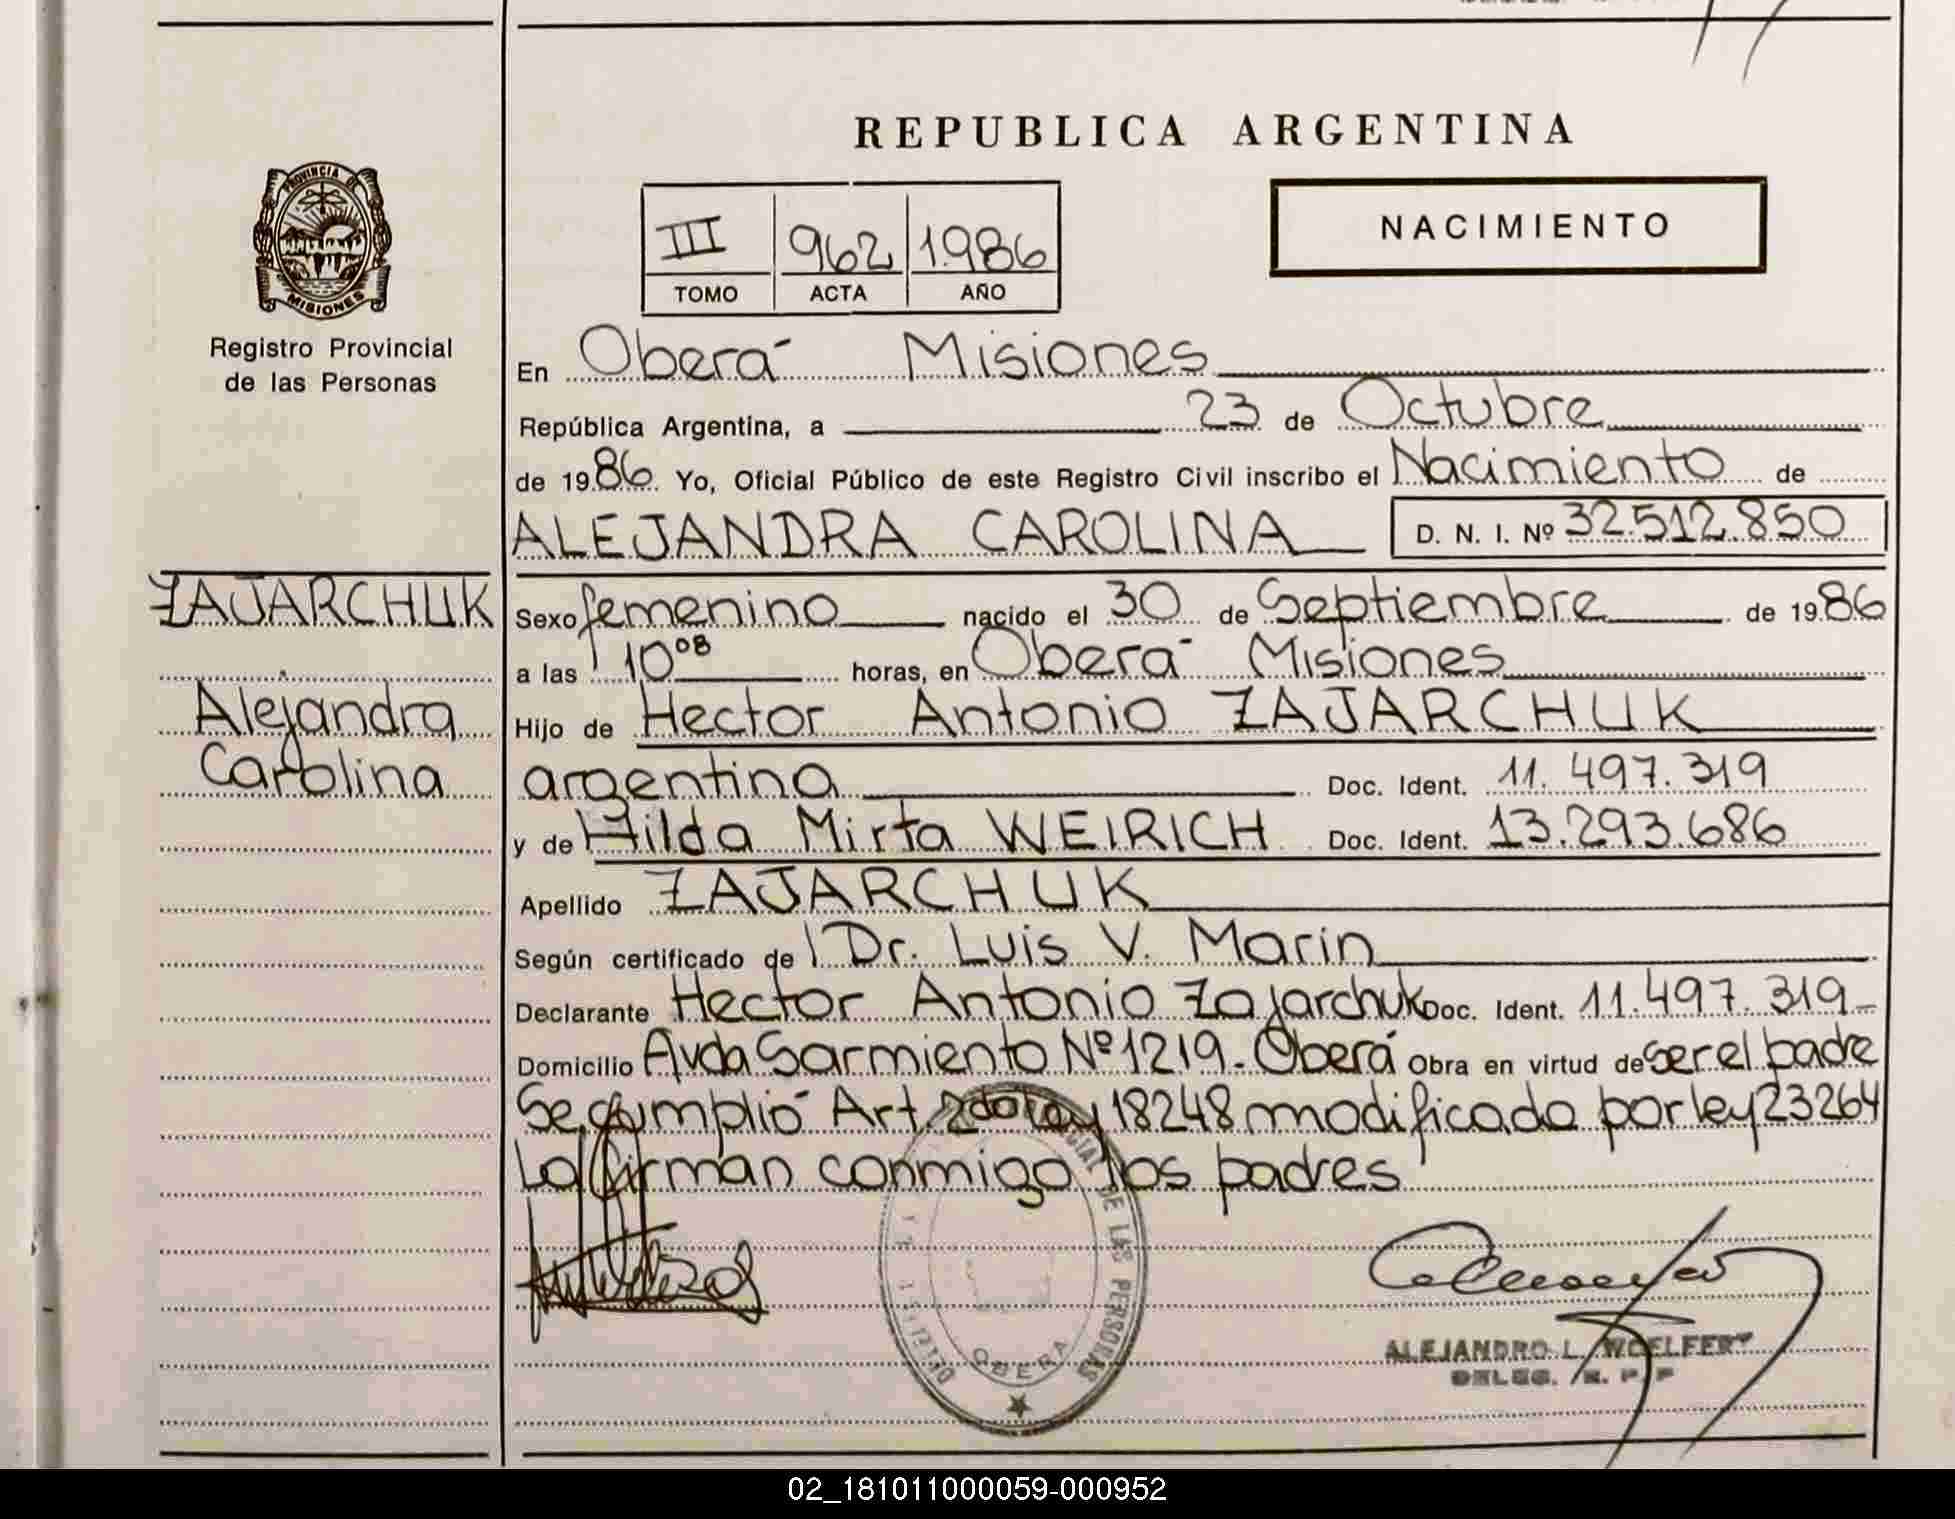 REPUBLICA ARGENTINA
PROVINCIA DE
MISIONES
Registro Provincial
de las Personas
III 962 1986
TOMO ACTA AÑO
NACIMIENTO
En Oberá Misiones
República Argentina, a 23 de Octubre
de 1986 Yo, Oficial Público de este Registro Civil inscribo el Nacimiento de
ALEJANDRA CAROLINA D. N. I. Nº 32.512.850
ZAJARCHUK
Alejandra
Carolina
Sexo femenino nacido el 30 de Septiembre de 1986
a las 10⁰⁸ horas, en Oberá Misiones
Hijo de Hector Antonio ZAJARCHUK
argentina Doc. Ident. 11.497.319
y de Hilda Mirta WEIRICH Doc. Ident. 13.293.686
Apellido ZAJARCHUK
Según certificado de Dr. Luis V. Marin
Declarante Hector Antonio Zajarchuk Doc. Ident. 11.497.319-
Domicilio Avda Sarmiento Nº 1219- Oberá Obra en virtud de ser el padre
Se cumplió Art. 2do ley 18248 modificado por ley 23264
La firman conmigo los padres
DE LAS PERSONAS
OBERA
ALEJANDRO L. WOELFERT
DELEG. R. P. P
02_181011000059-000952